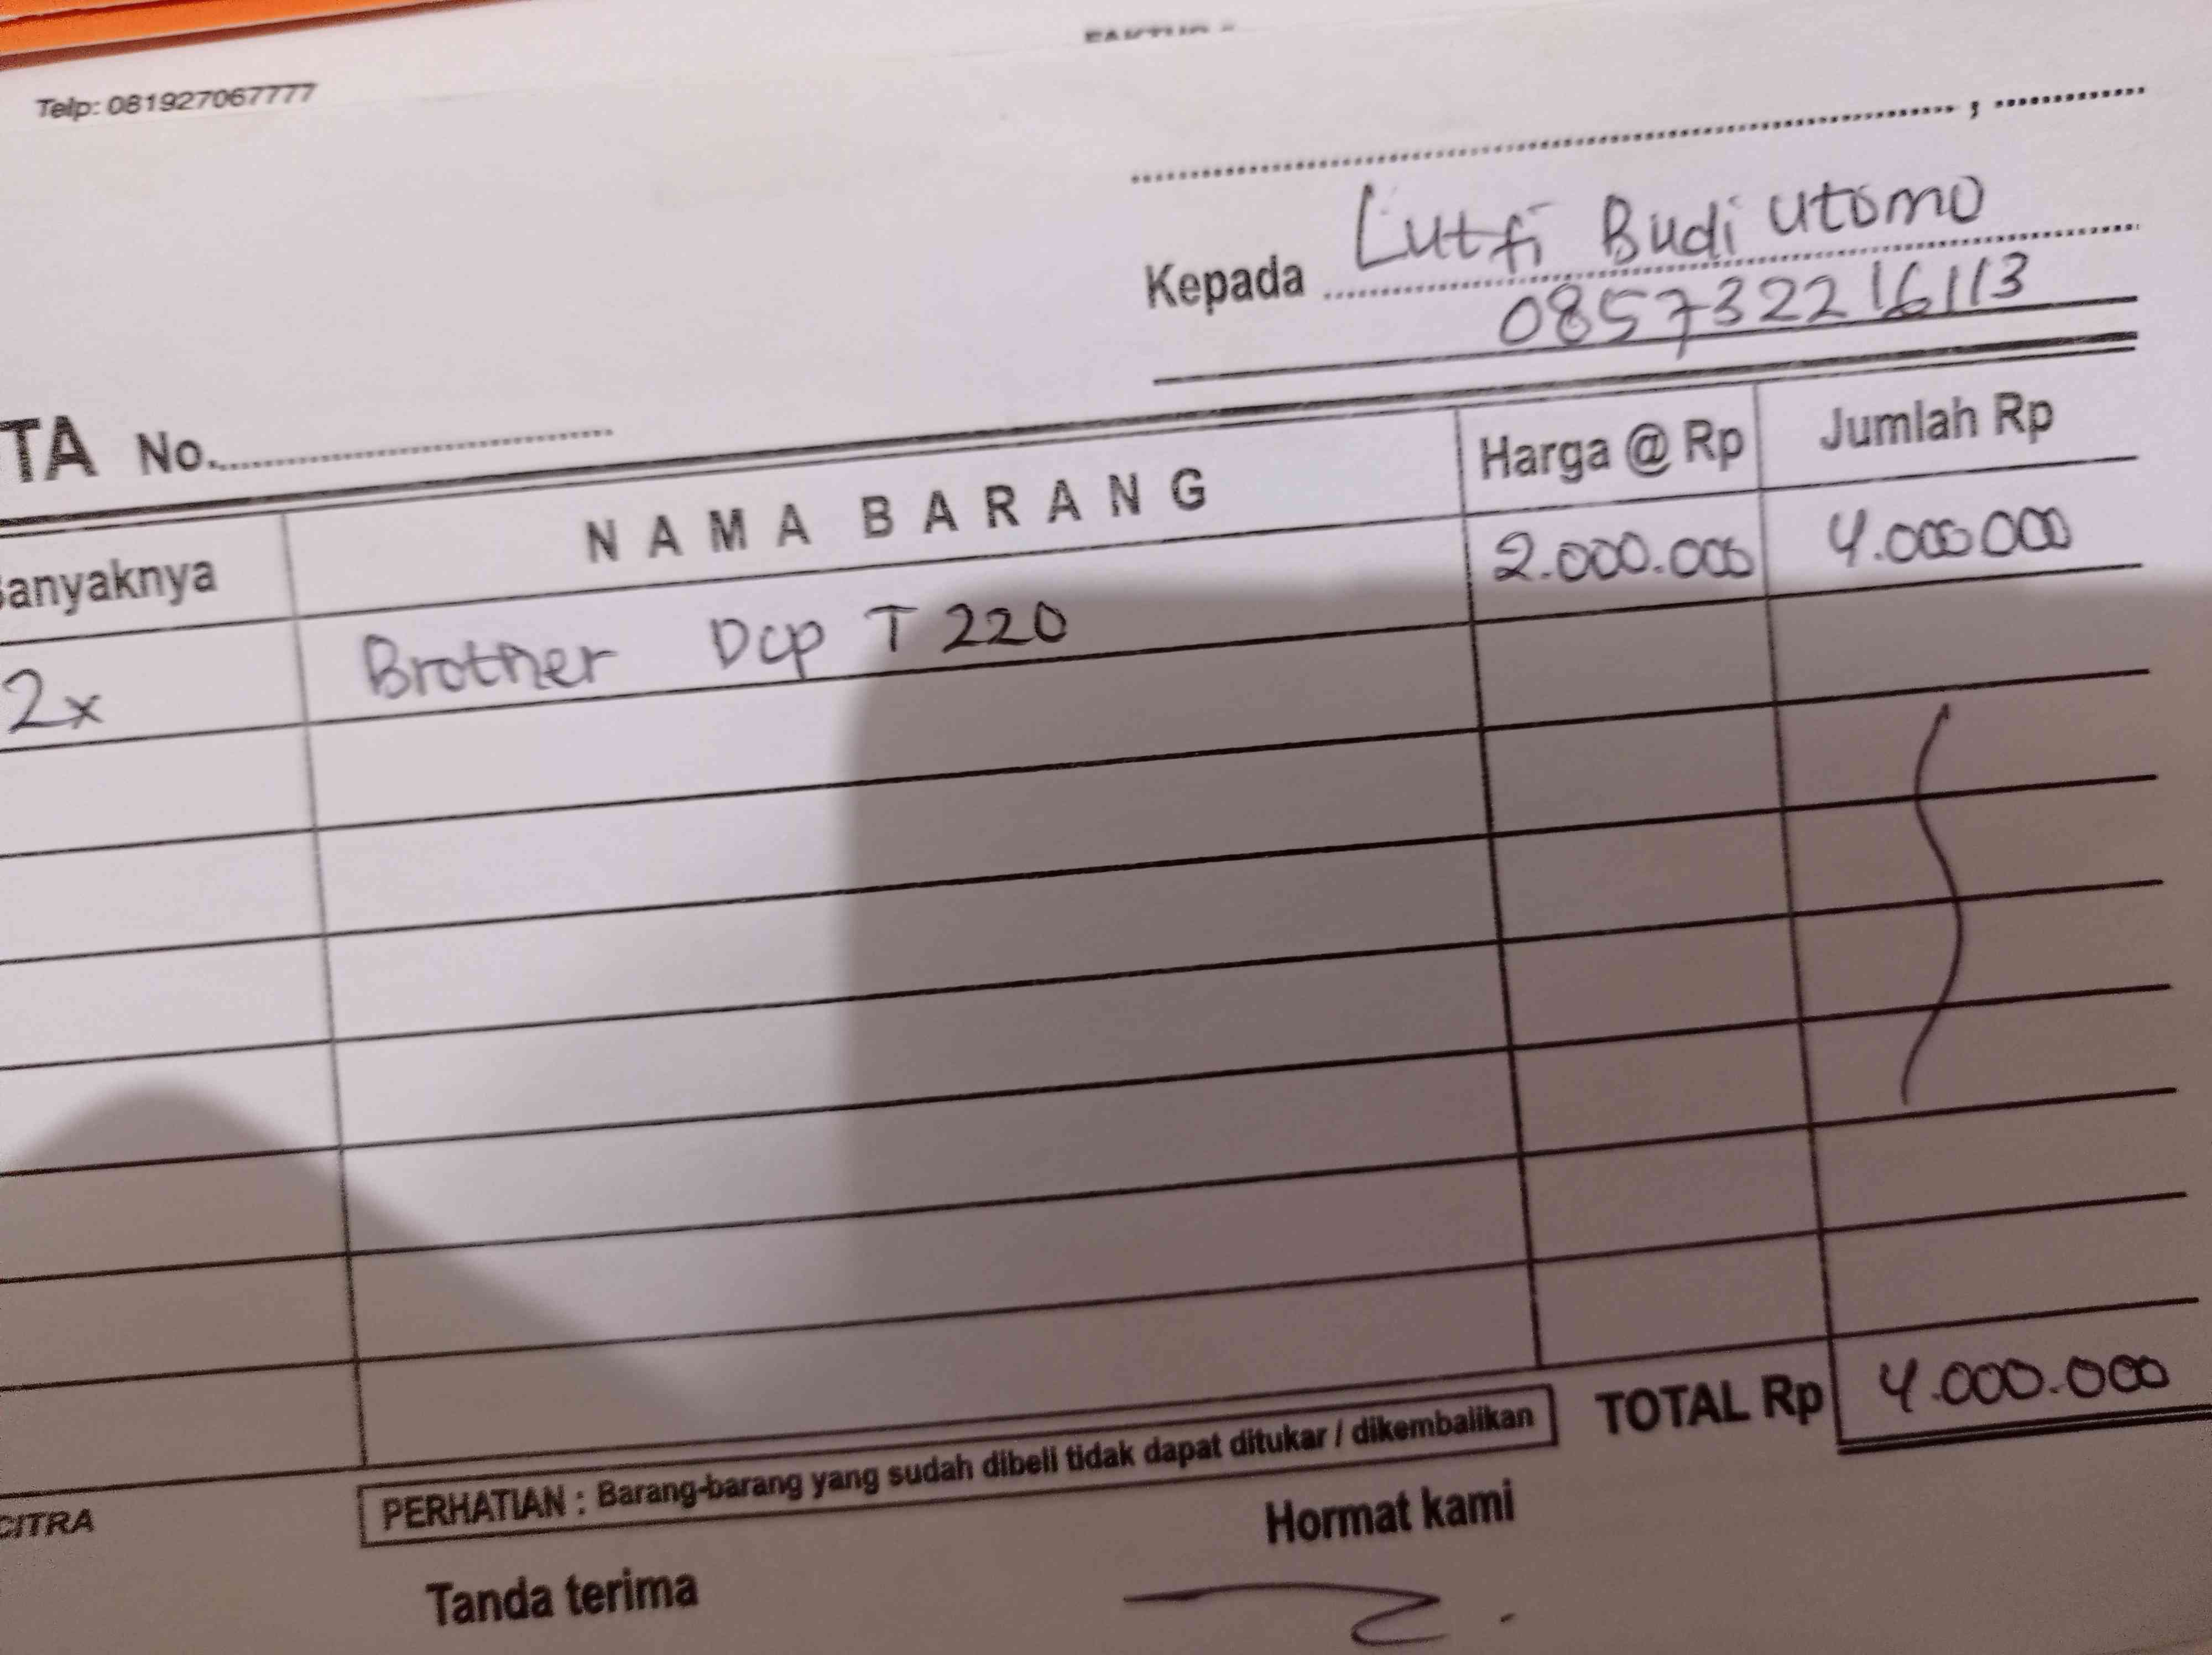 Telp: 081927067777
Kepada Lutfi Budi Utomo
085732216113
TA No.
Banyaknya NAMA BARANG Harga @ Rp Jumlah Rp
2x Brother Dcp T 220 2.000.000 4.000 000
TOTAL Rp 4.000.000
PERHATIAN : Barang-barang yang sudah dibeli tidak dapat ditukar / dikembalikan
CITRA
Tanda terima Hormat kami